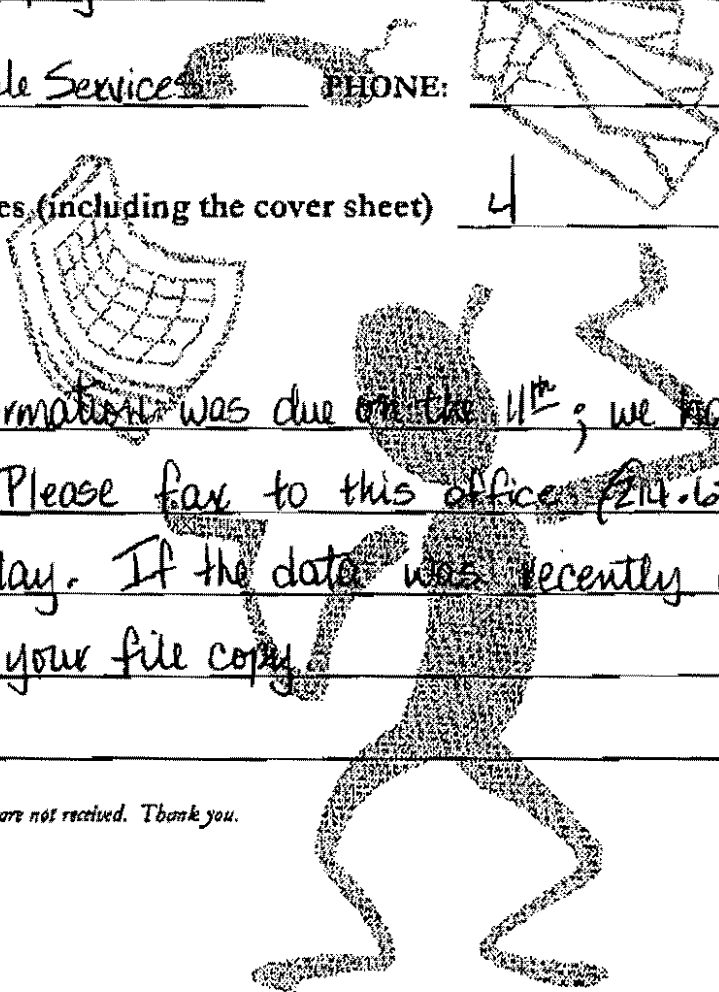 Services PHONE:
(including the cover sheet) 4
was due on the 11th; we
Please fax to this office (214.6
If the data was recently
your file copy
are not received. Thank you.